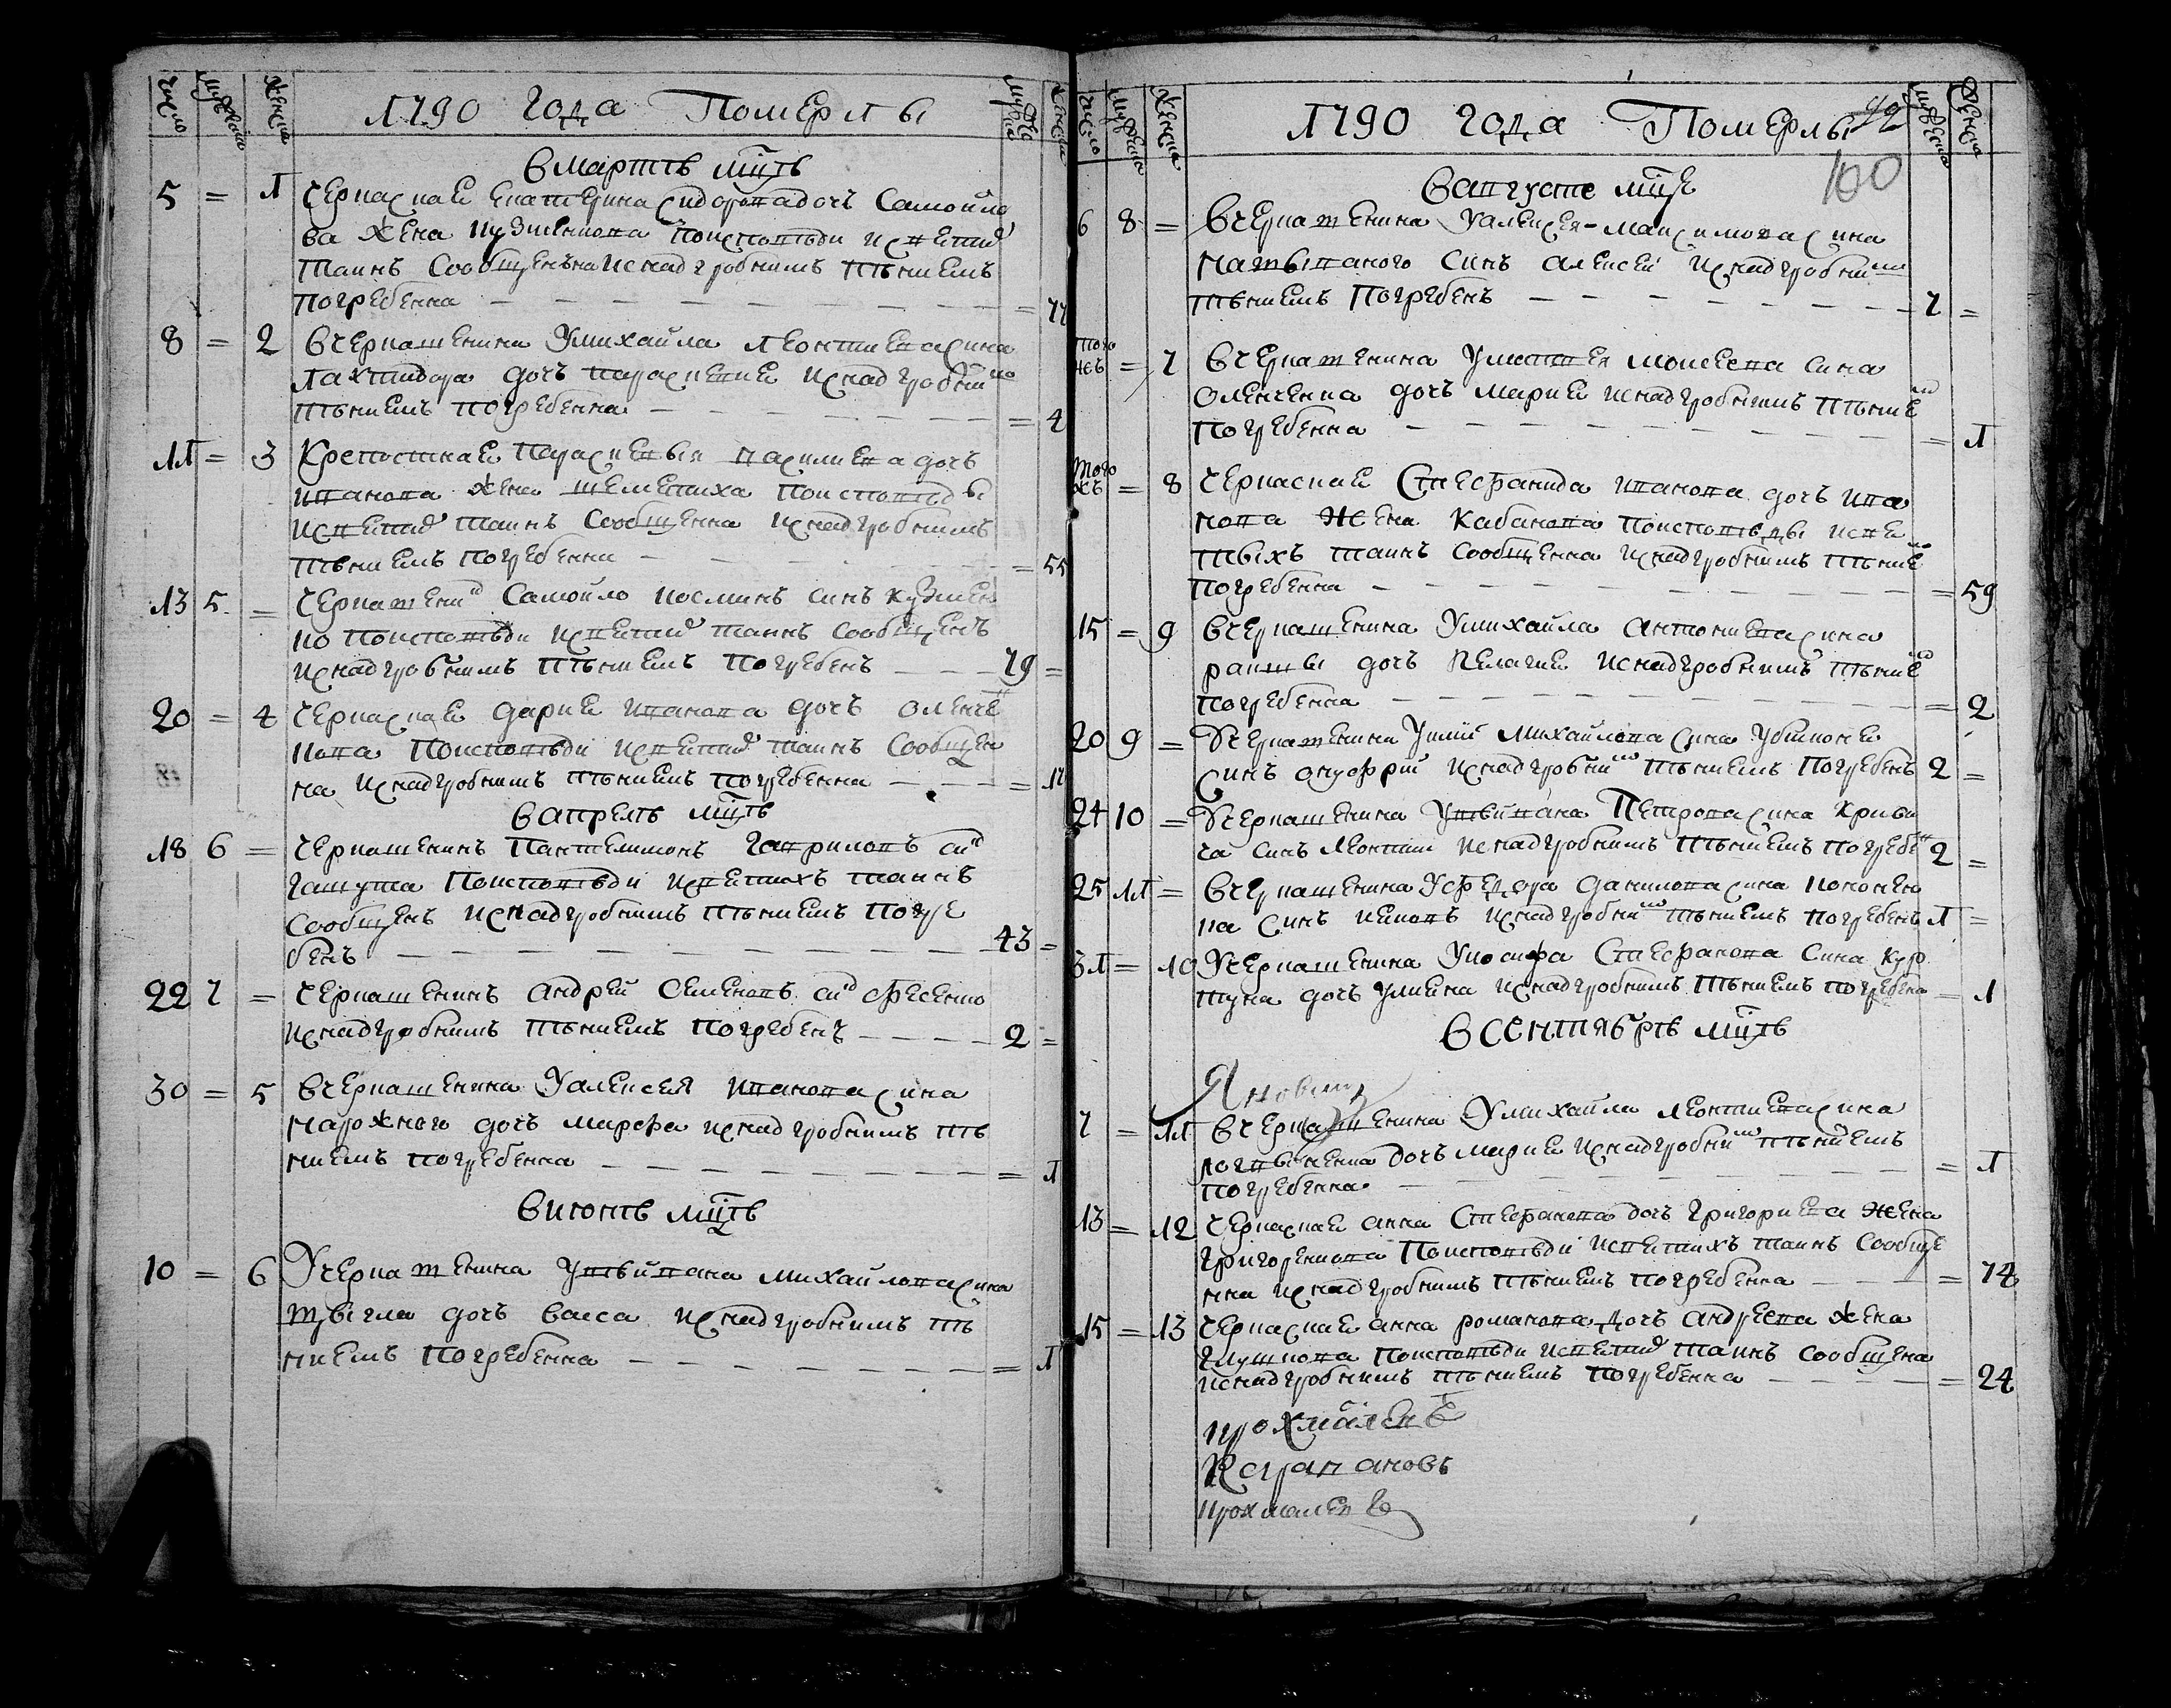 число
мужеска
женска
1790 Года Померлы
мужеска
женска
в мартѣ мцѣ
5 = 1 черкаская екатерина сидорова дочь самойло
ва жена кузменкова по исповѣди и святих
таинъ сообщенна и с надгробнимъ пѣниемъ
погребенна = 77
8 = 2 в черкашенина у михайла леонтиева сина
дочь параскевия и с надгробним
пѣниемъ погребенна = 4
11 = 3 крепостная параскевыя василиева дочь
иванова жена шелестиха по исповѣды
и святих таинъ сообщенна и с надгробнимъ
пѣниемъ погребенна = 55
13 5 = черкашенин самойло косминъ синъ кузмен
ко по исповѣди и святих таинъ сообщенъ
и с надгробнимъ пѣниемъ погребенъ 79 =
20 = 4 черкаская дария иванова дочь оленче
нкова по исповѣди и святих таинъ сообщен
на и с надгробнимъ пѣниемъ погребенна = 17
в апрелѣ мцѣ
18 6 = черкашенинъ пантелимонъ гавриловъ син
гашута по исповѣди и святихъ таинъ
сообщенъ и с надгробнимъ пѣниемъ погре
бенъ 43 =
22 7 = черкашенинъ андрей семеновъ син фесенко
и с надгробнимъ пѣниемъ погребенъ 2 =
30 = 5 в черкашенина у алексея иванова сина
нарожного дочь марфа и с надгробнимъ пѣ
ниемъ погребенна = 1
в июнѣ мцѣ
10 = 6 у черкашенина у ивана михайлова сина
дочь васса и с надгробнимъ пѣ
ниемъ погребенна = 1
число
мужеска
женска
1790 года Померлы 42
мужеска
женска
100
в августе мце
6 8 = в черкашенина у алексея максимова сина
синъ алексей и с надгробним
пѣниемъ погребенъ 7 =
того
жъ = 7 в черкашенина у матвея моисеева сина
оленченка дочь мария и с надгробнимъ пѣние
погребенна = 1
того
жъ = 8 черкаская стефанида иванова дочь ива
нова жена кабанова по исповѣды и свя
тыхъ таинъ сообщенна и с надгробнимъ пѣние
погребенна = 59
15 = 9 в черкашенина у михайла антониева сина
дочь пелагия и с надгробнимъ пѣние
погребенна = 2
20 9 = в черкашенина михайлова сина
синъ онуфрий и с надгробним пѣниемъ погребенъ 2 =
24 10 = в черкашенина у ивана петрова сина криви
ча синъ леонтий и с надгробнимъ пѣниемъ погребен 2 =
25 11 = в черкашенина у федора данилова сина кононен
ка синъ и с надгробним пѣниемъ погребенъ 1 =
31 = 10 у черкашенина у иосифа стефанова сина кур
дочь улияна и с надгробнимъ пѣниемъ погребена = 1
в сентябрѣ мцѣ
7 = 11 в черкашенина у михайла леонтиева сина
дочь мария и с надгробним пѣниемъ
погребенна = 1
13 = 12 черкаская анна стефанова дочь григориева жена
григоренкова по исповѣди и святихъ таинъ сообще
нна и с надгробнимъ пѣниемъ погребенна = 74
15 = 13 черкаская анна романова дочь андреева жена
глушкова по исповѣди и святих таинъ сообщена
и с надгробнимъ пѣниемъ погребенна = 24